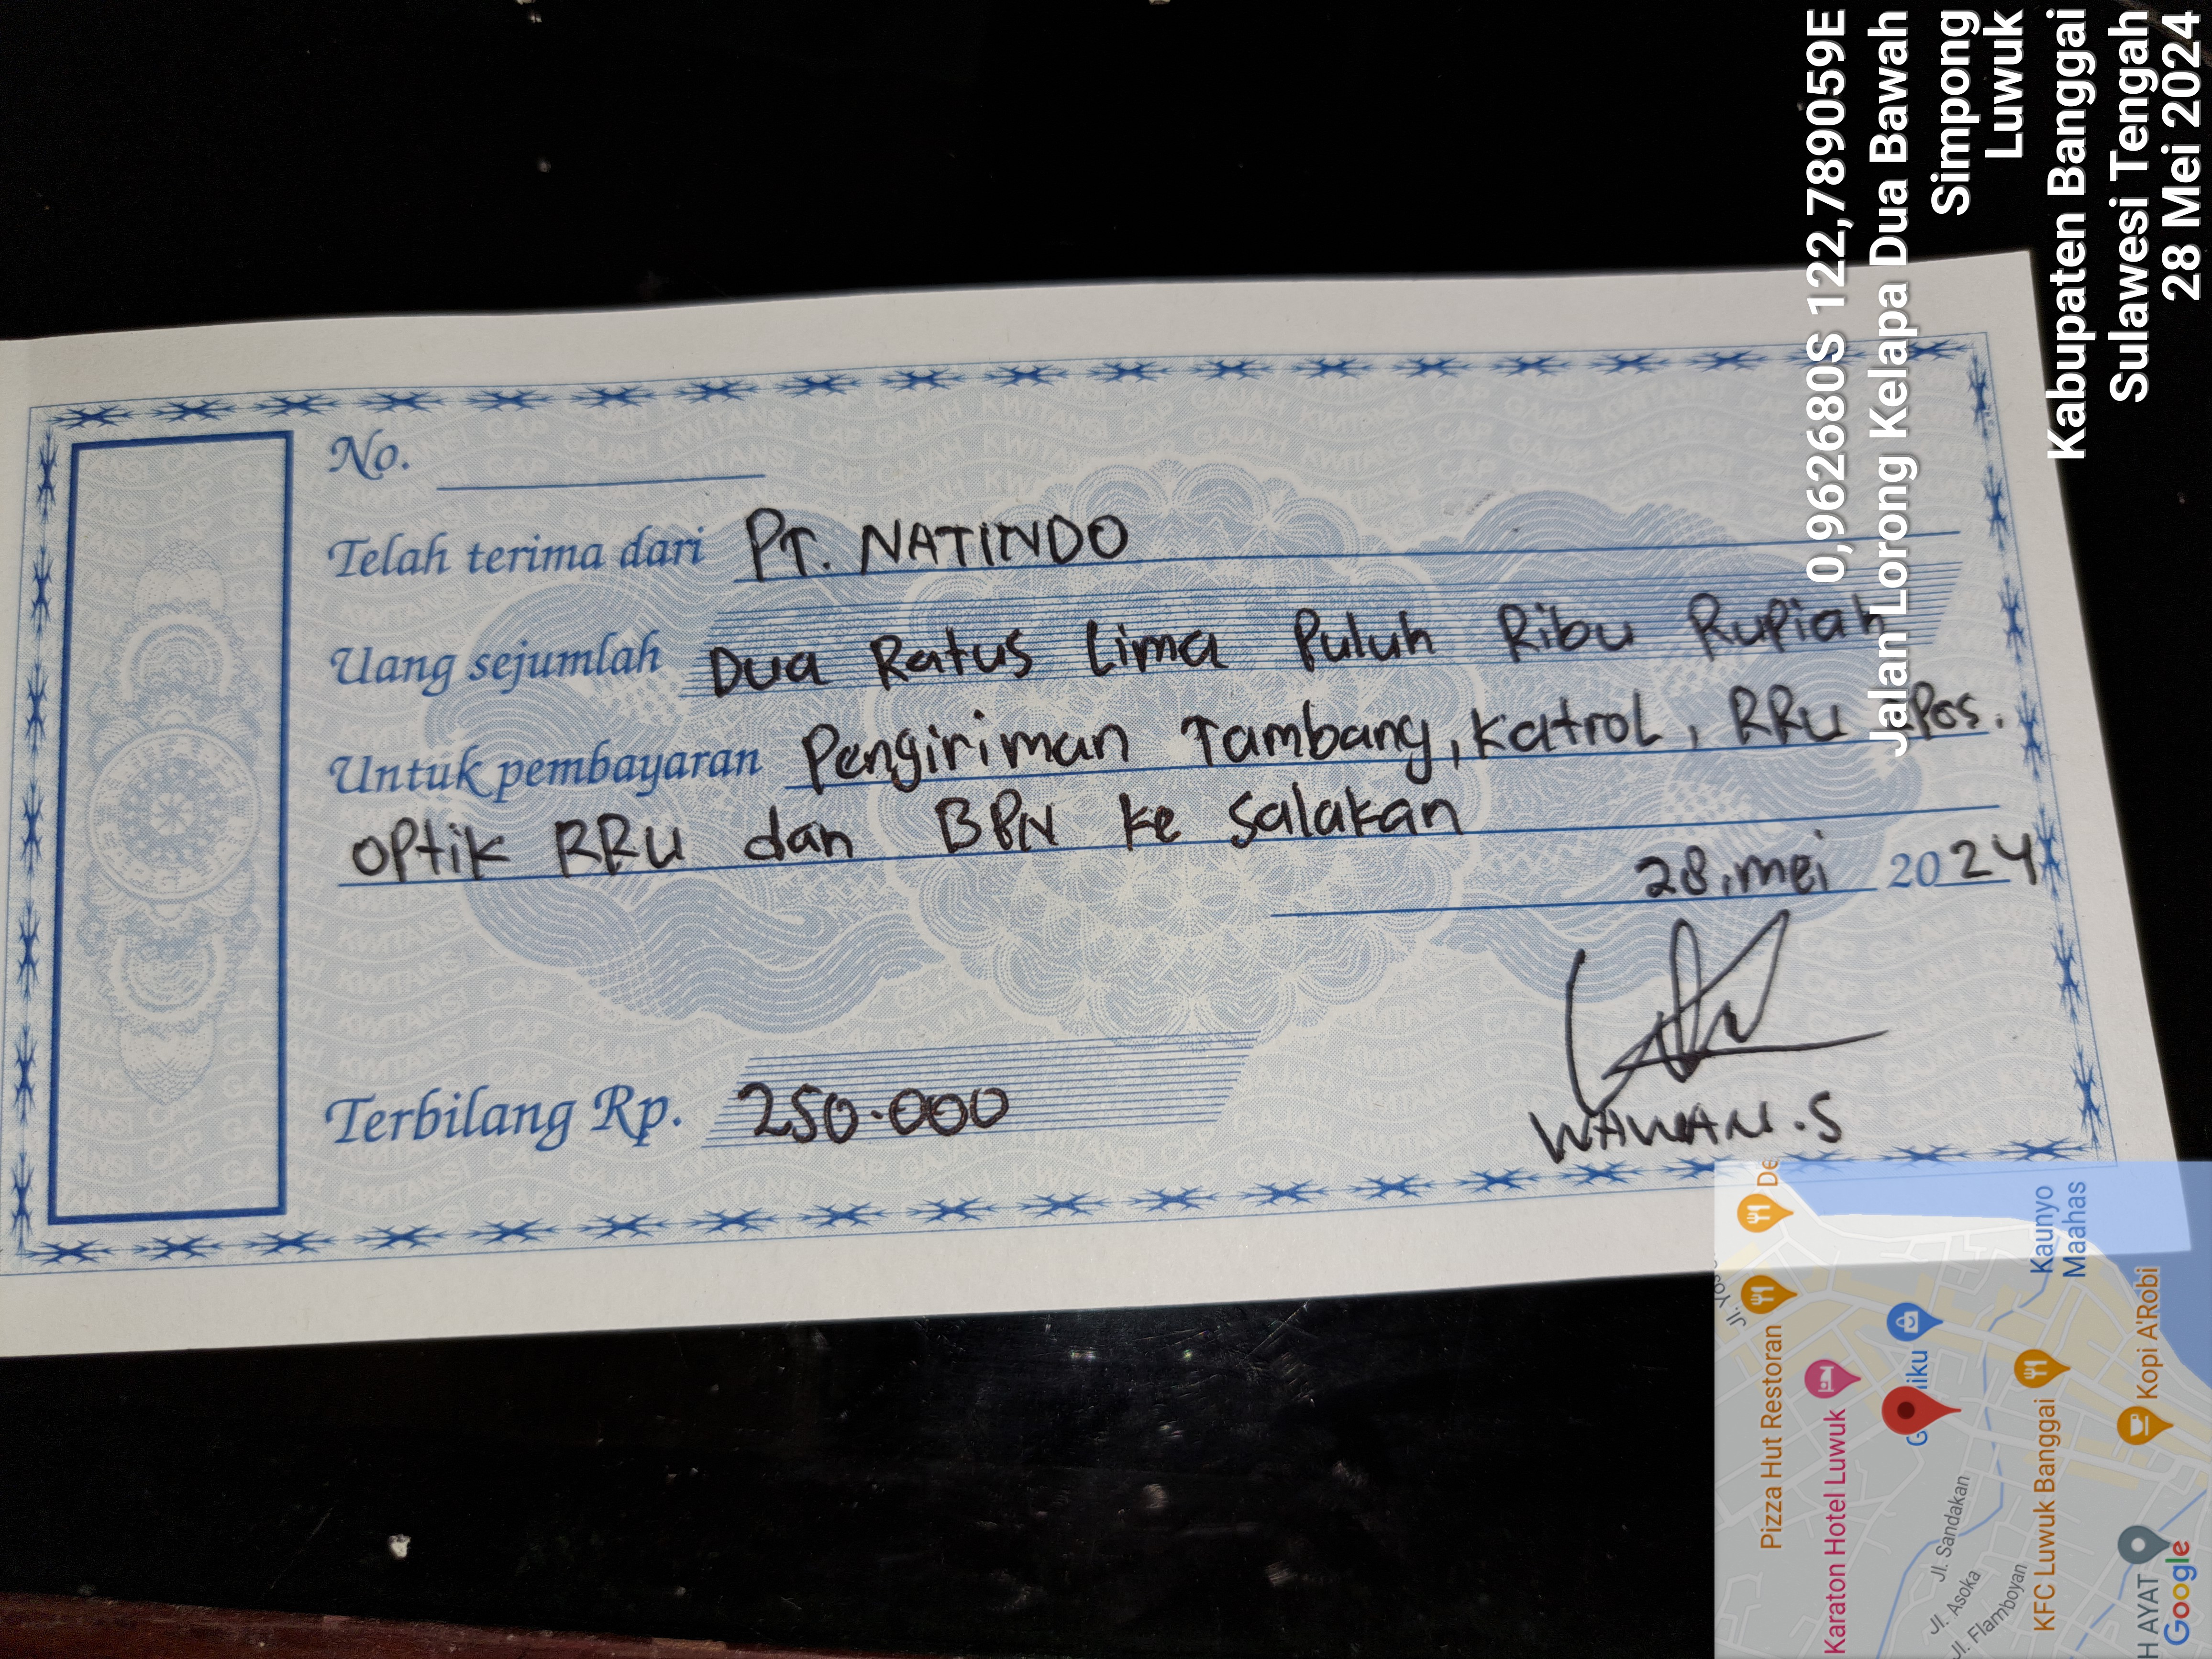 No.
Telah terima dari PT. NATINDO
Uang sejumlah Dua Ratus Lima Puluh Ribu Rupiah
Untuk pembayaran Pengiriman Tambang, Katrol, RRU Pos.
OPtik RRU dan BPN ke Salakan
28, mei 2024
Terbilang Rp. 250.000
WAWAN.S
0,962680S 122,789059E
Jalan Lorong Kelapa Dua Bawah
Simpong
Luwuk
Kabupaten Banggai
Sulawesi Tengah
28 Mei 2024
De
Pizza Hut Restoran
Karaton Hotel Luwuk
iku
Kaunyo
Maahas
Jl. Sandakan
Jl. Asoka
Jl. Flamboyan
KFC Luwuk Banggai
Kopi A'Robi
H AYAT
Google